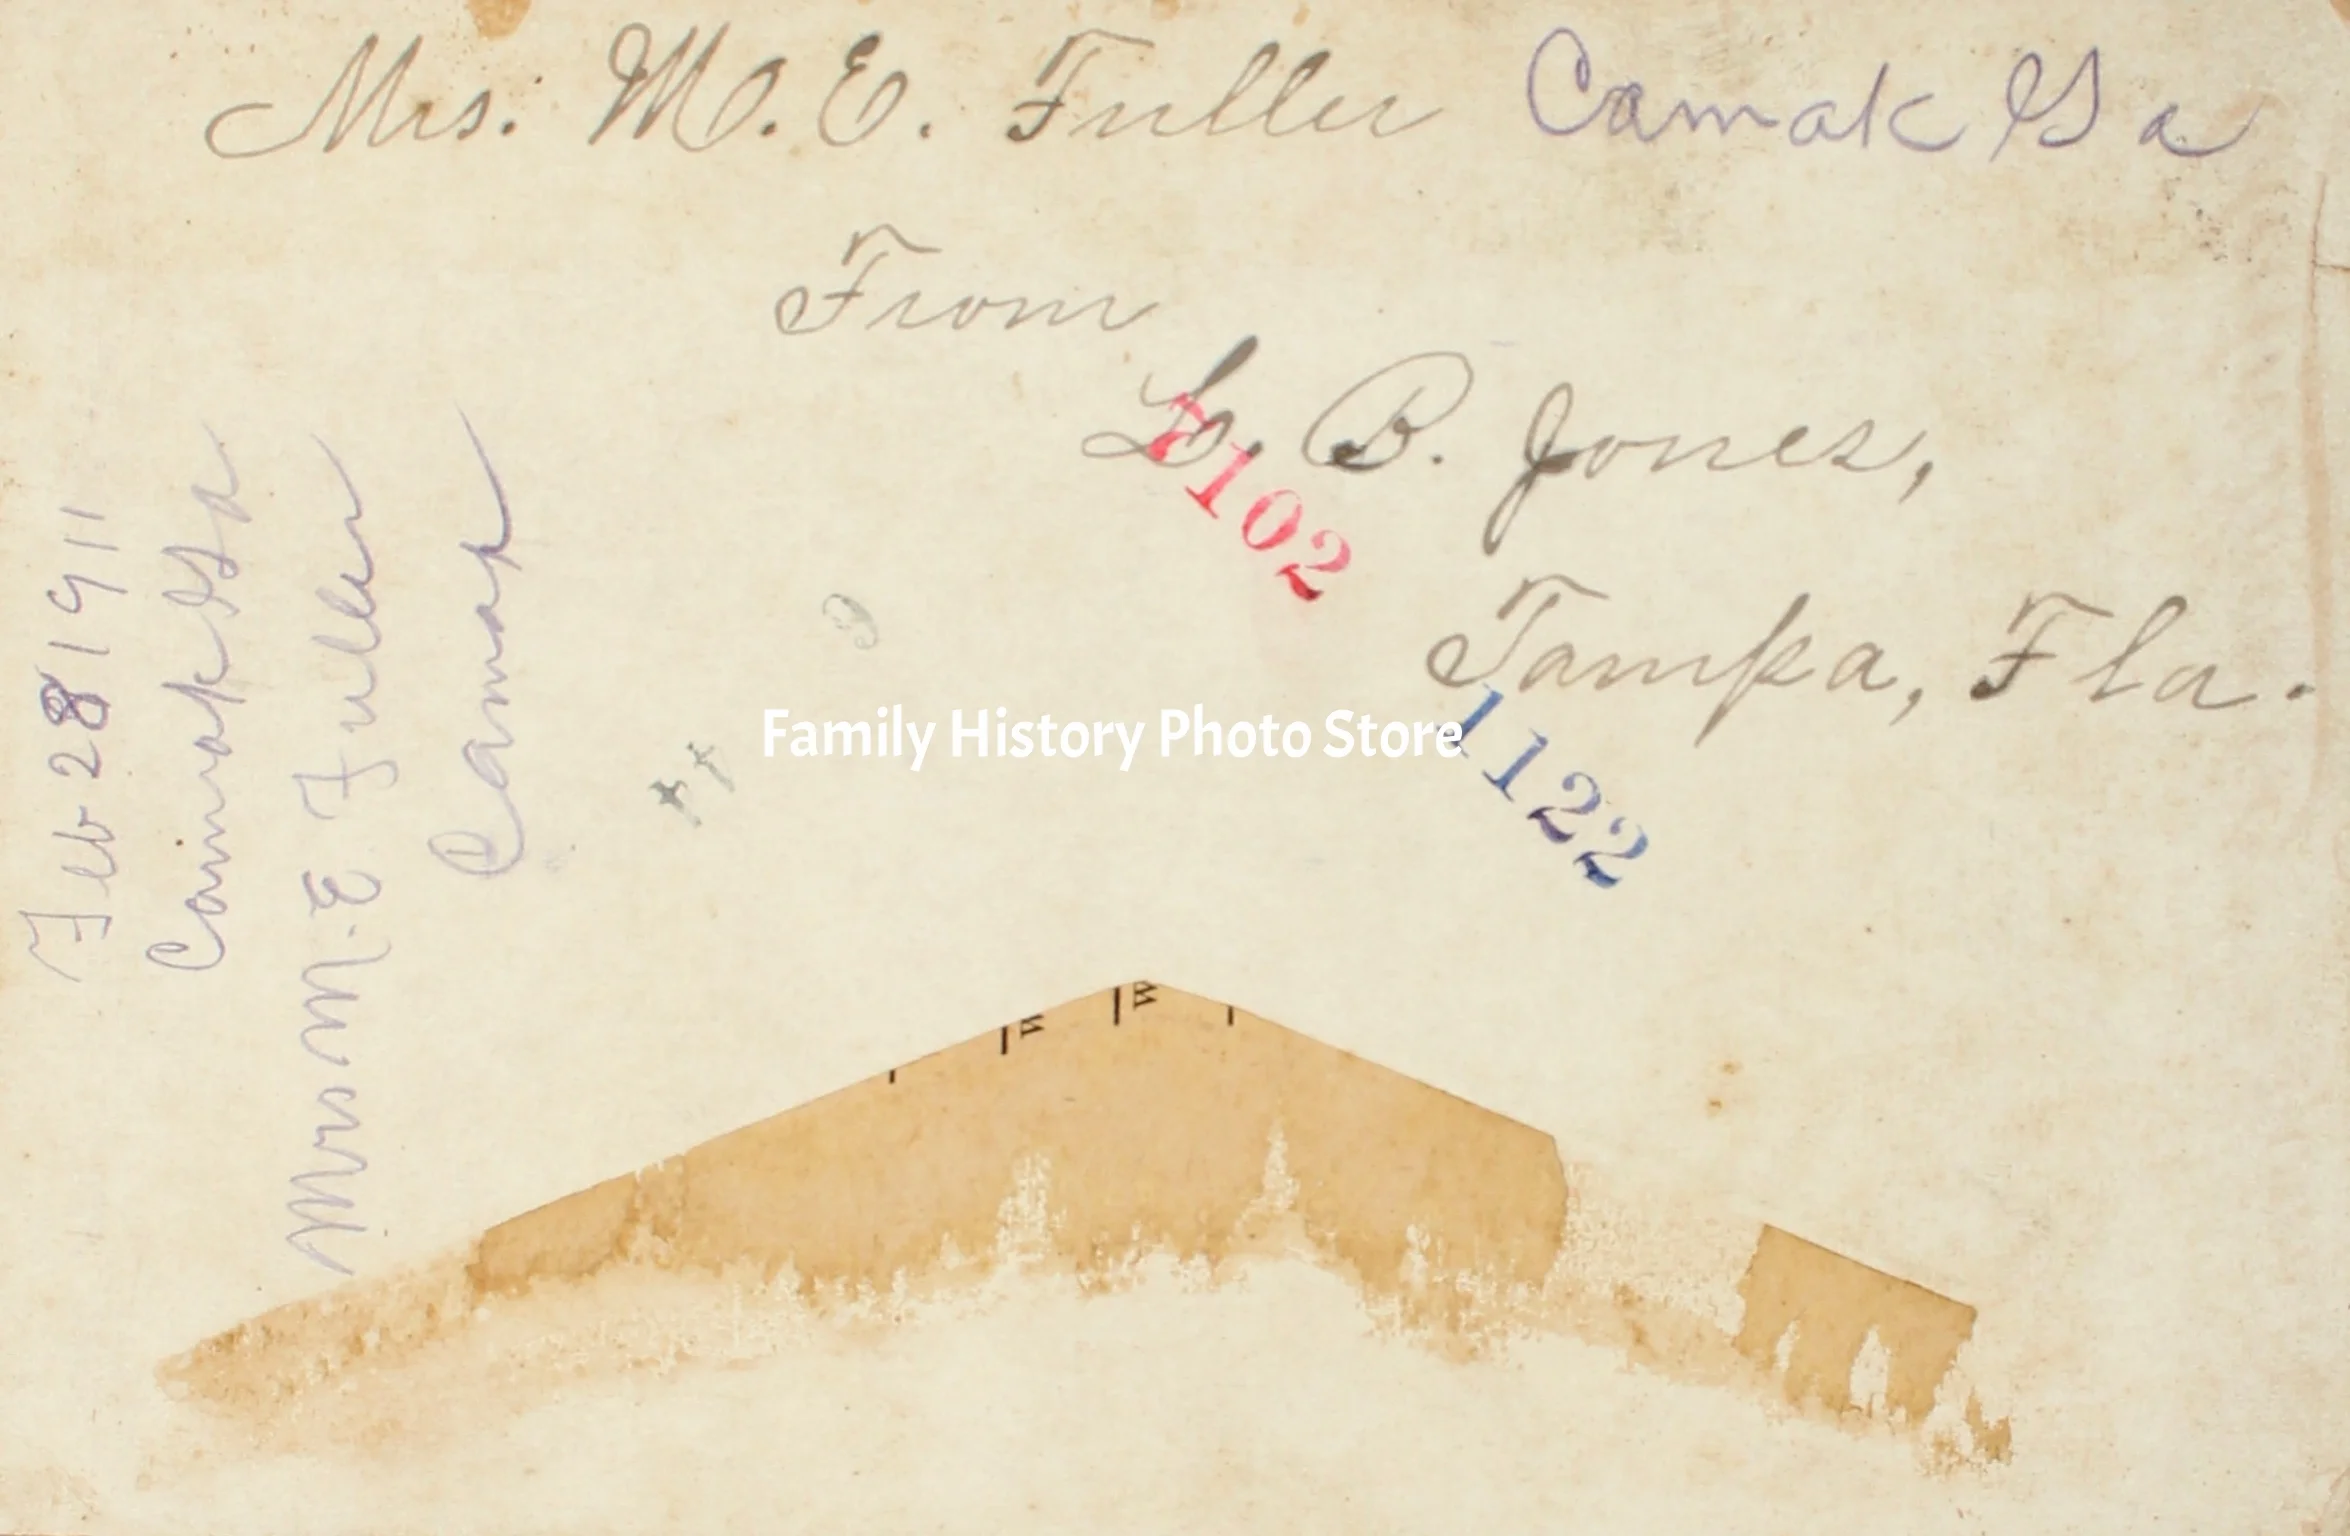 Mrs. M. E. Fuller Camak Ga
From
L. B. Jones,
1102
Tampa, Fla.
1122
Family History Photo Store
Feb 28 1911
Camak Ga
Mrs M. E Fuller
Camak